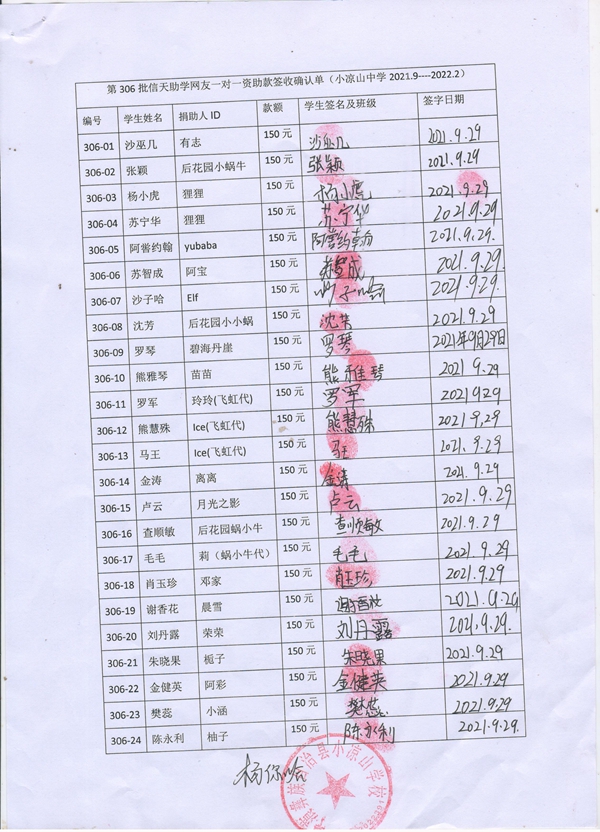 第 306 批信天助学网友一对一资助款签收确认单（小凉山中学 2021.9----2022.2）
编号 学生姓名 捐助人 ID 款额 学生签名及班级 签字日期
306-01 沙巫几 有志 150 元 沙巫几 2021.9.29
306-02 张颖 后花园小蜗牛 150 元 张颖 2021.9.29
306-03 杨小虎 狸狸 150 元 杨小虎 2021.9.29
306-04 苏宁华 狸狸 150 元 苏宁华 2021.9.29
306-05 阿喾约翰 yubaba 150 元 阿喾约翰 2021.9.29.
306-06 苏智成 阿宝 150 元 苏智成 2021.9.29.
306-07 沙子哈 Elf 150 元 沙子哈 2021.9.29.
306-08 沈芳 后花园小小蜗 150 元 沈芳 2021.9.29
306-09 罗琴 碧海丹崖 150 元 罗琴 2021年9月29日
306-10 熊雅琴 苗苗 150 元 熊雅琴 2021 9.29
306-11 罗军 玲玲(飞虹代) 150 元 罗军 2021929
306-12 熊慧殊 Ice(飞虹代) 150 元 熊慧殊 2021.9.29
306-13 马王 Ice(飞虹代) 150 元 马王 2021.9.29
306-14 金涛 离离 150 元 金涛 2021.9.29
306-15 卢云 月光之影 150 元 卢云 2021.9.29
306-16 查顺敏 后花园蜗小牛 150 元 查顺敏 2021.9.29
306-17 毛毛 莉（蜗小牛代） 150 元 毛毛 2021.9.29
306-18 肖玉珍 邓家 150 元 肖玉珍 2021.9.29
306-19 谢香花 晨雪 150 元 谢香花 2021.9.29
306-20 刘丹露 荣荣 150 元 刘丹露 2021.9.29.
306-21 朱晓果 栀子 150 元 朱晓果 2021.9.29
306-22 金健英 阿彩 150 元 金健英 2021.9.29
306-23 樊蕊 小涵 150 元 樊蕊 2021.9.29
306-24 陈永利 柚子 150 元 陈永利 2021.9.29.
杨你哈
彝族自治县小凉山学校